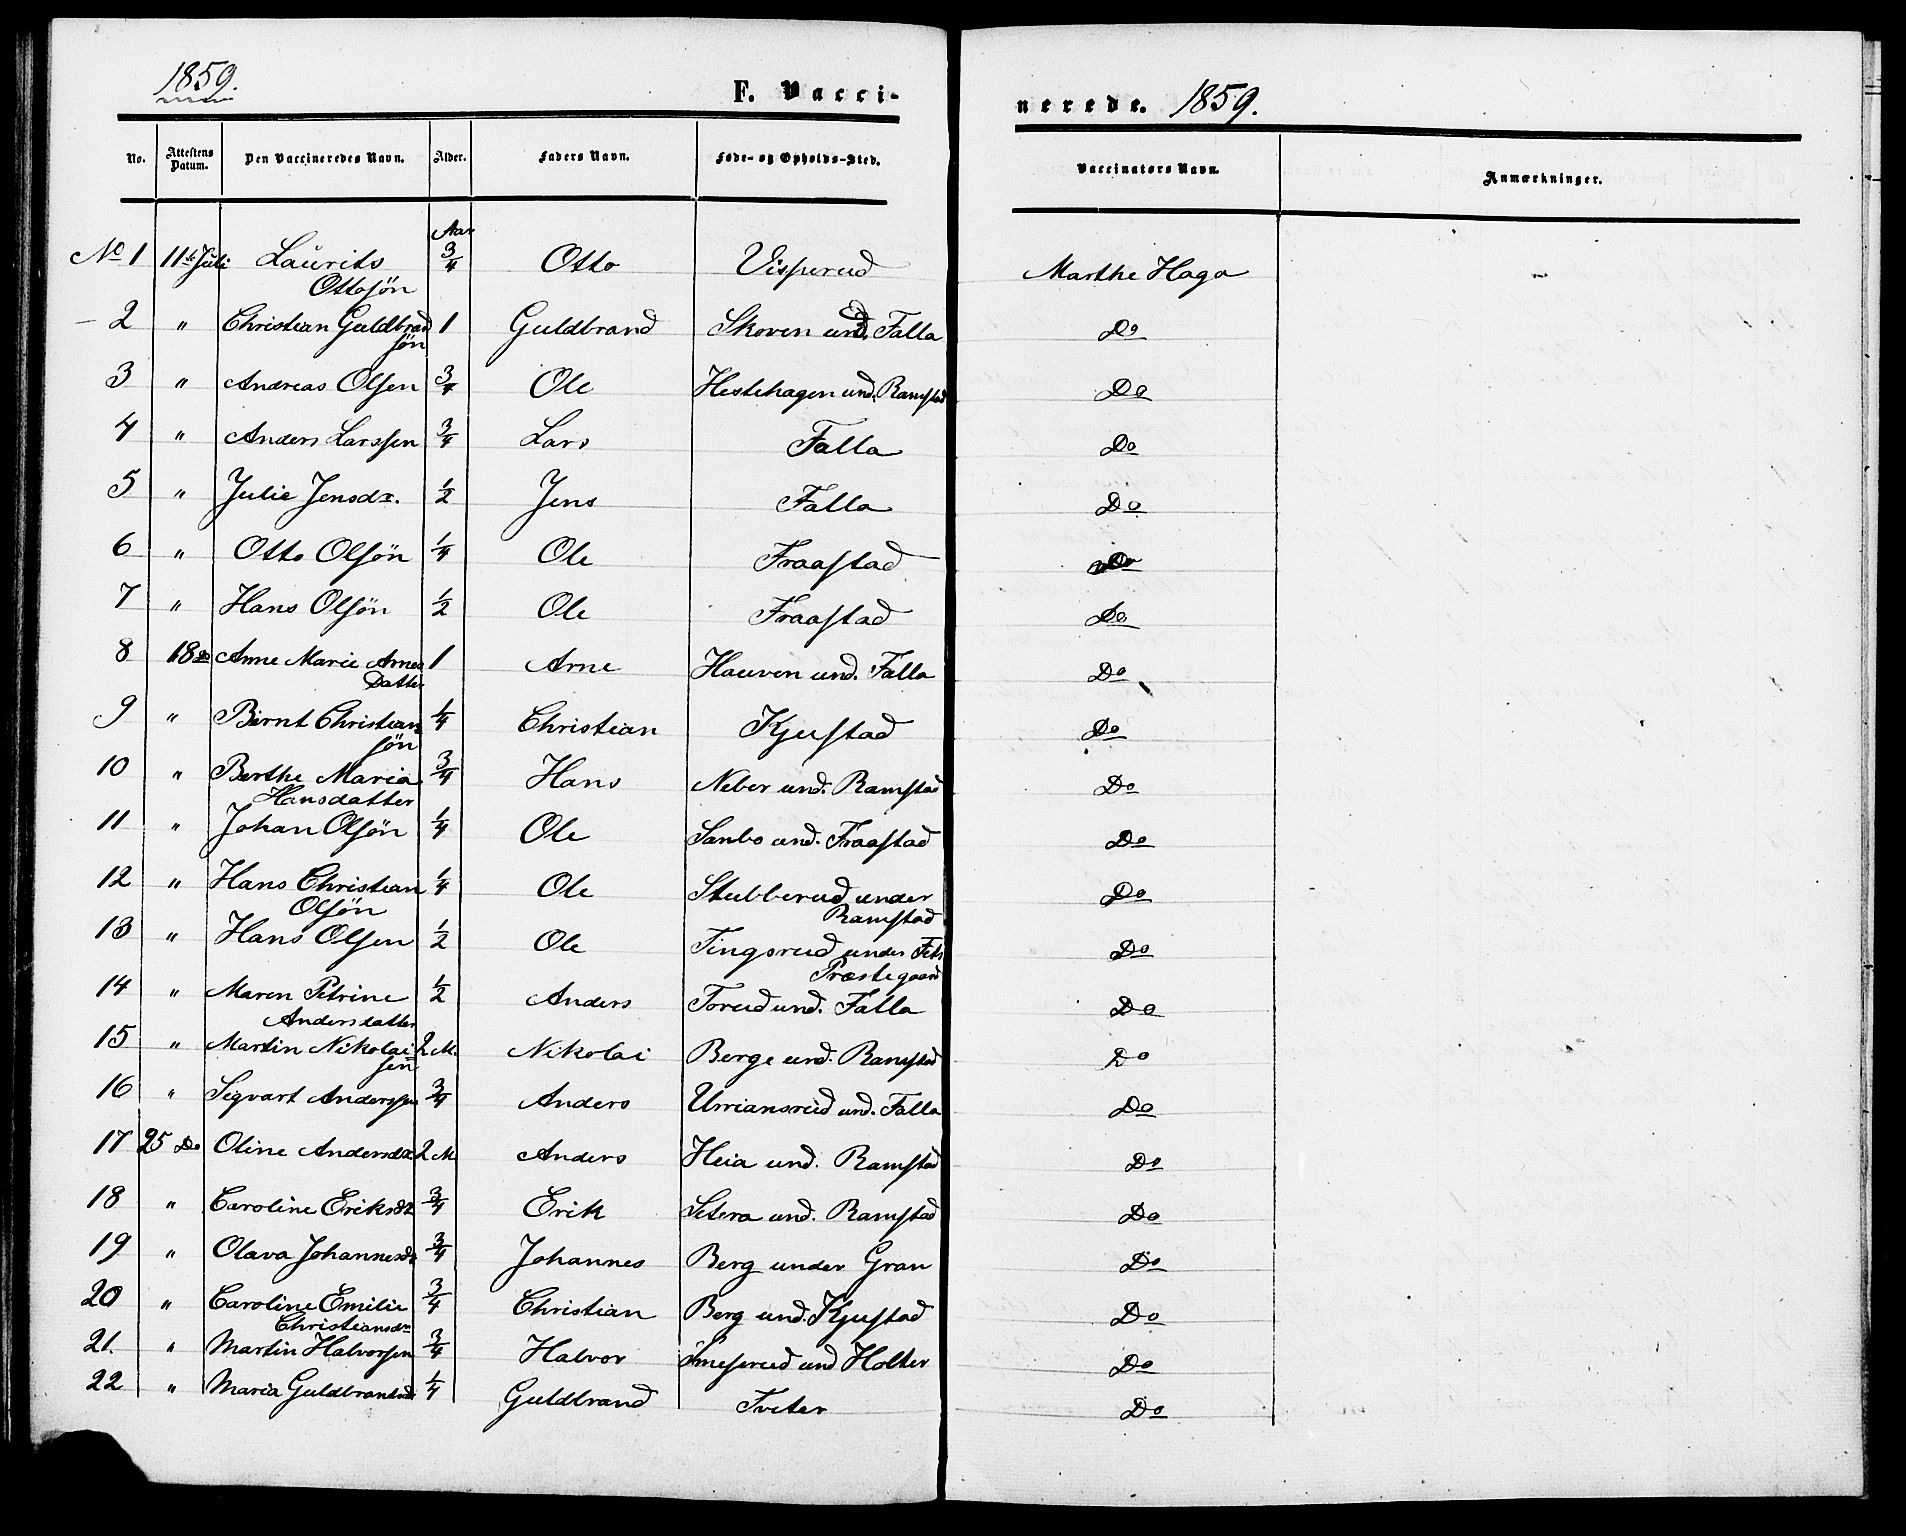 1859.
F. Vacci-
nerede. 1859.
No. Attestens Datum. Den Vaccineredes Navn. Alder. Faders Navn. Føde- og Opholds-Sted. Vaccinatørs Navn. Anmærkninger.
Aar
No 1 11te Juli Laurits Ottosøn 3/4 Otto Visperud Marthe Haga -
2 " Christian Guldbrandsøn 1 Guldbrand Skoven und. Falla Do
3 " Andreas Olsen 3/4 Ole Hestehagen und. Ramstad Do
4 " Anders Larssen 3/4 Lars Falla Do
5 " Julie Jensdr. 1/2 Jens Falla Do
6 " Otto Olsøn 1/4 Ole Fraastad Do
7 " Hans Olsøn 1/2 Ole Fraastad Do
8 18 Do Anne Marie Arnes Datter 1 Arne Hauven und. Falla Do
9 " Bernt Christiansøn 1/4 Christian Kjustad Do
10 " Berthe Maria Hansdatter 3/4 Hans Neber und. Ramstad Do
11 " Johan Olsøn 1/4 Ole Sanbo und. Fraastad Do
12 " Hans Christian Olsøn 1/4 Ole Stubberud under Ramstad Do
13 " Hans Olsen 1/2 Ole Tingsrud under Fets Præstegaard Do
14 " Maren Petrine Andersdatter 1/2 Anders Torud und. Falla Do
15 " Martin Nikolaisen 2 M. Nikolai Berge und. Ramstad Do
16 " Sigvart Anderssen 3/4 Anders Urriansrud und. Falla Do
17 25 Do Oline Andersdr 2 M Anders Heia und. Ramstad Do
18 " Caroline Eriksdr 3/4 Erik Setera und. Ramstad Do
19 " Olava Johannesdr 3/4 Johannes Berg under Gran Do
20 " Caroline Emilie Christiansdr 3/4 Christian Berg und. Kjustad Do
21. " Martin Halvorsen 3/4 Halvor und Holter Do
22 " Maria Guldbrandsdr 1/4 Guldbrand Tveter Do